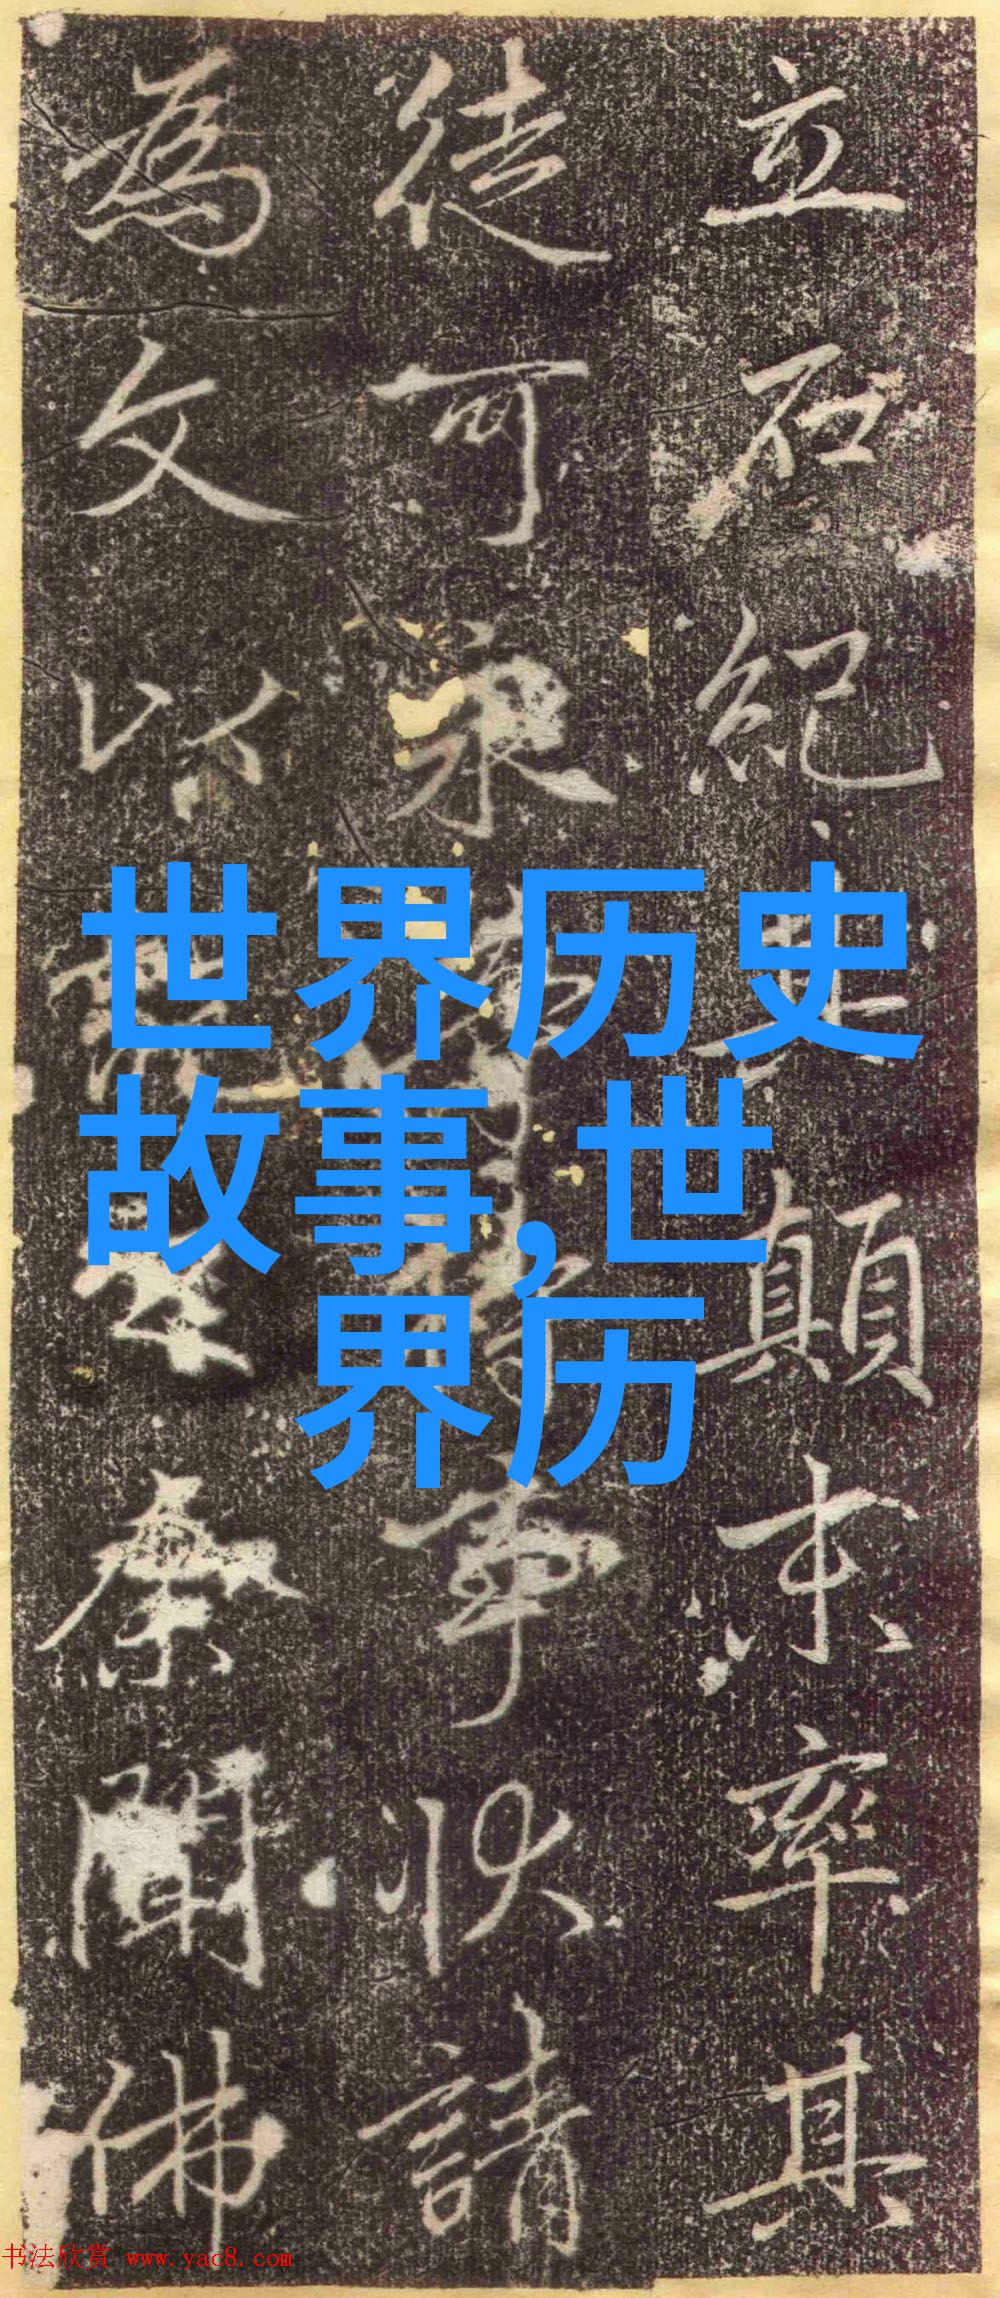 世界历史
故事,世
界历
立石紀其顛末率其
徒可永事狀請
為文以余聞佛
书法欣赏 www.yac8.com